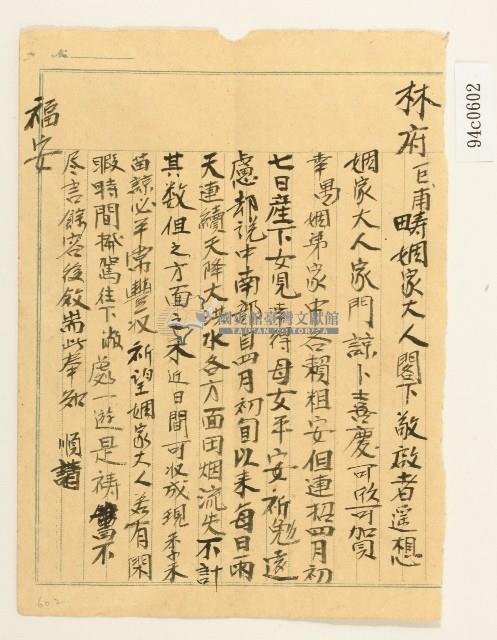 林府 巨甫疇姻家大人閣下敬啟者遥想
姻家大人家門諒卜喜慶可欣可賀
幸愚姻弟家中各賴粗安但連招四月初
七日産下女児幸得母女平安祈免遠
慮却說中南部自四月初旬以来每日雨
天連續天降大洪水各方面田畑流失不計
其数但之方面之禾近日間可收成現季禾
苗諒必平常豐收祈望姻家大人若有閑
暇時間挪駕往下敝處一遊是禱書不
尽言餘容後叙耑此奉知 順請
福安
94c0602
國史館臺灣文獻館
TAIWAN HISTORICA
No
602